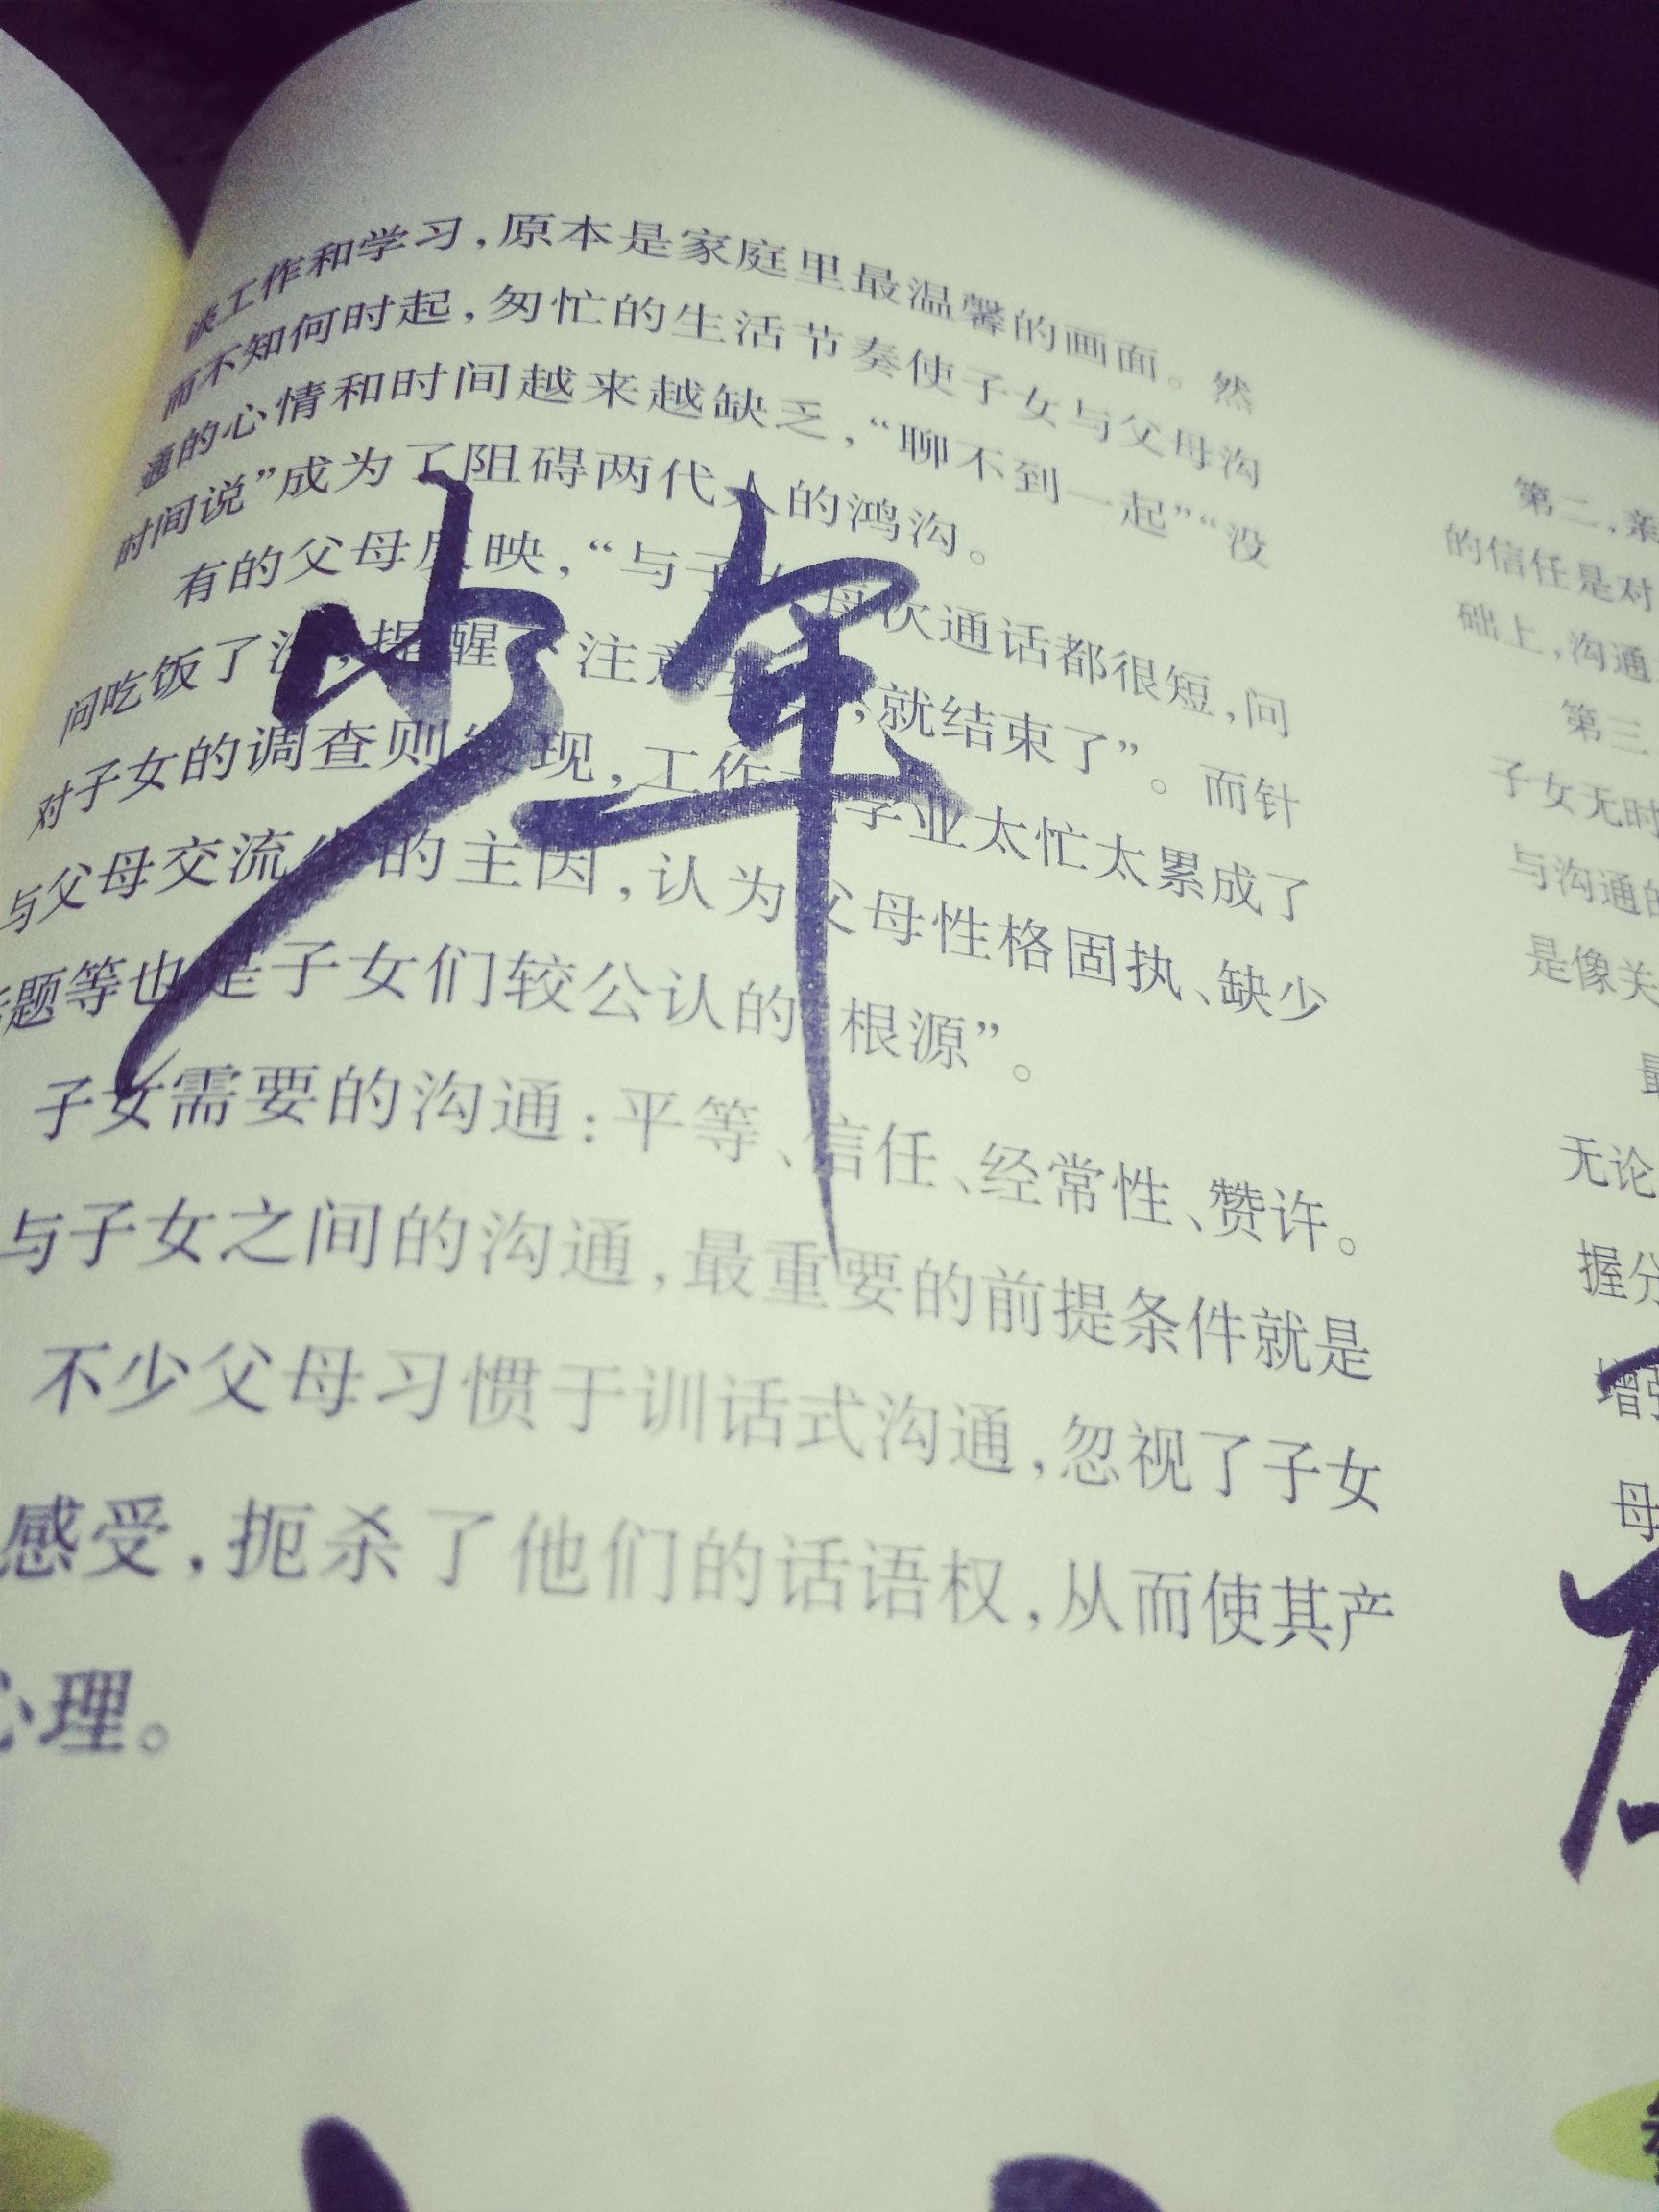 谈工作和学习，原本是家庭里最温馨的画面。然
而不知何时起，匆忙的生活节奏使子女与父母沟
通的心情和时间越来越缺乏，“聊不到一起”“没
时间说”成为了阻碍两代人的鸿沟。
有的父母反映，“与子女每次通话都很短，问
问吃饭了没，提醒下注意，就结束了”。而针
对子女的调查则发现，工作学业太忙太累成了
与父母交流少的主因，认为父母性格固执、缺少
题等也是子女们较公认的“根源”。
子女需要的沟通：平等、信任、经常性、赞许。
与子女之间的沟通，最重要的前提条件就是
不少父母习惯于训话式沟通，忽视了子女
感受，扼杀了他们的话语权，从而使其产
心理。
少年
第二，亲
的信任是对
础上，沟通
第三
子女无时
与沟通的
是像关
最
无论
握分
增强
母